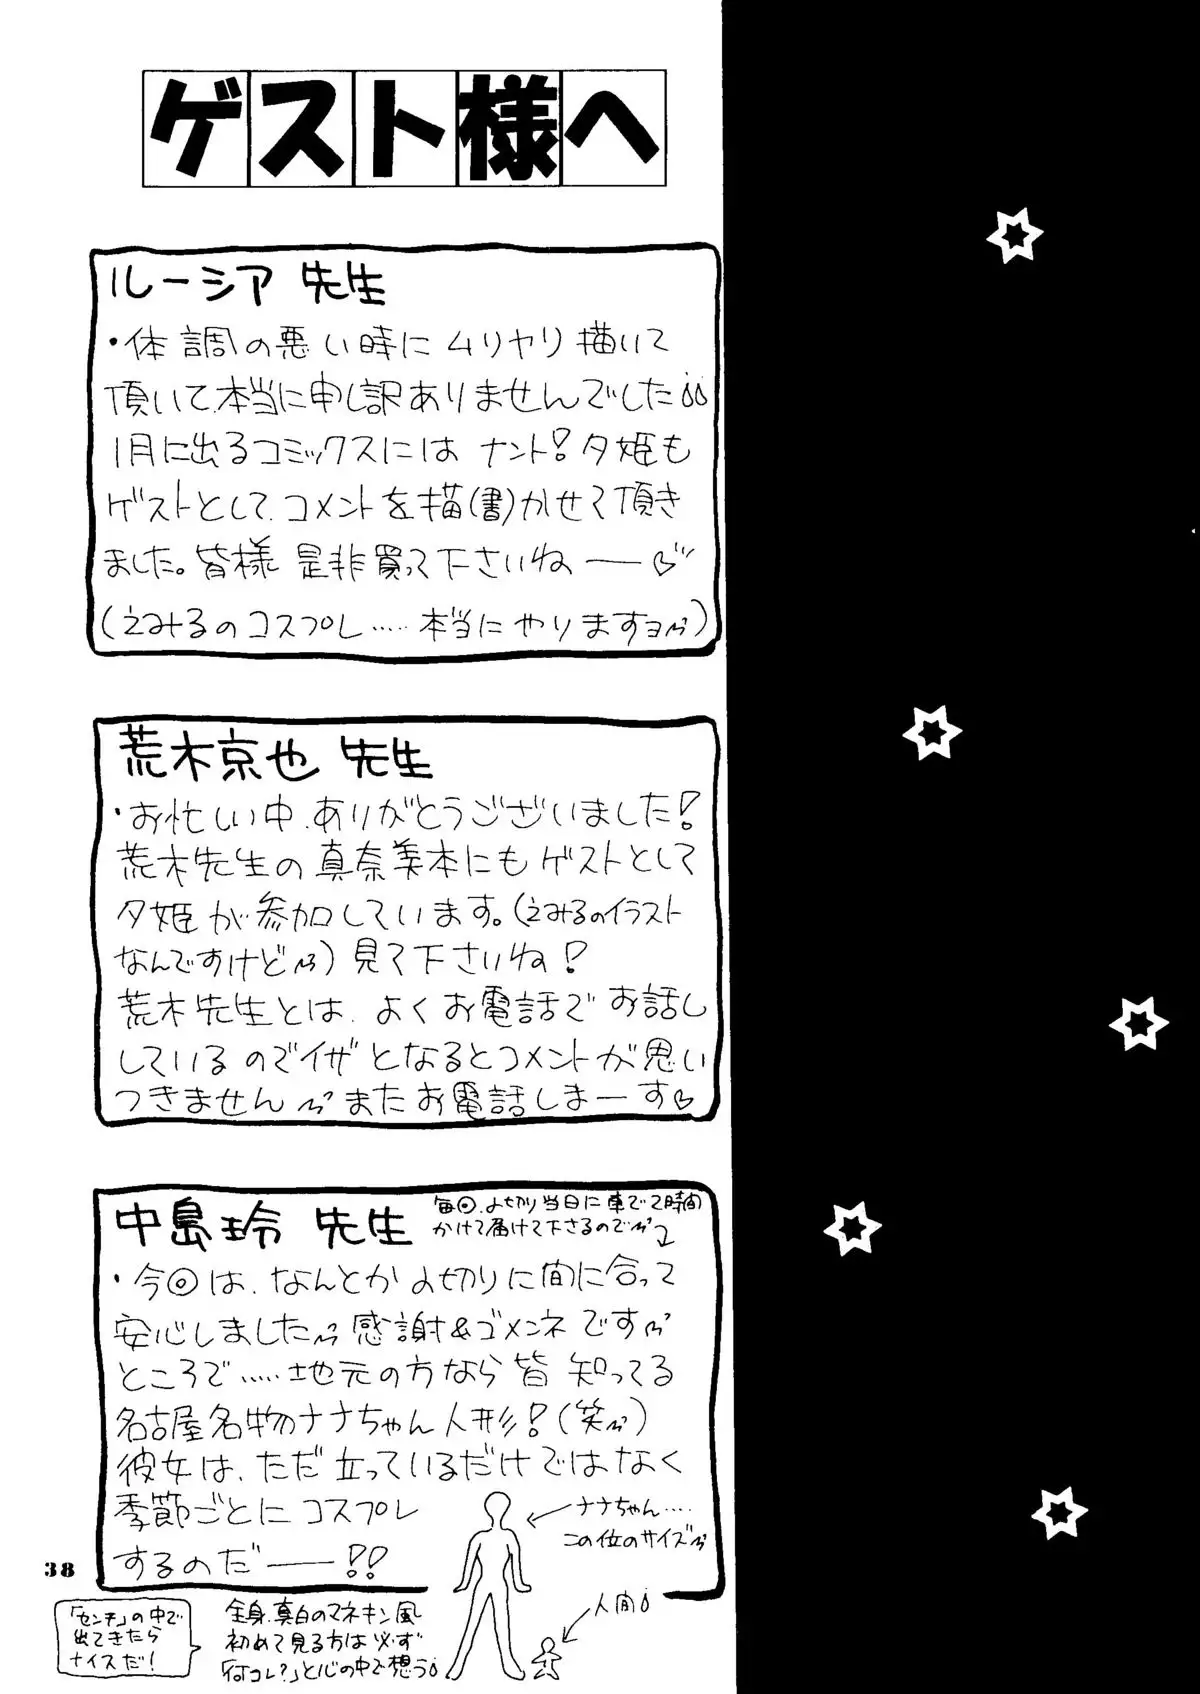 ゲスト様へ
ルーシア 先生
・体調の悪い時にムリヤリ描いて
頂いて、本当に申し訳ありませんでした
1月に出るコミックスには ナント!夕姫も
ゲストとして、コメントを描(書)かせて頂き
ました。皆様 是非買って下さいね——♡
(えみるのコスプレ……本当にやりますヨ)
荒木京也 先生
・お忙しい中、ありがとうございました!
荒木先生の真奈美本にもゲストとして
夕姫が参加しています。(えみるのイラスト
なんですけど)見て下さいね!
荒木先生とは、よくお電話でお話し
しているのでイザとなるとコメントが思い
つきません またお電話しまーす♡
中島玲 先生
毎回、〆切り当日に車で2時間
かけて届けて下さるので
・今回は、なんとか〆切りに間に合って
安心しました 感謝&ゴメンネです
ところで……地元の方なら皆 知ってる
名古屋名物のナナちゃん人形!(笑)
彼女は、ただ立っているだけではなく
季節ごとにコスプレ
するのだ——!!
ナナちゃん……
この位のサイズ
人間
38
「センチ」の中で
出てきたら
ナイスだ!
全身、真白のマネキン風
初めて見る方は必ず
「何コレ?」と心の中で想う